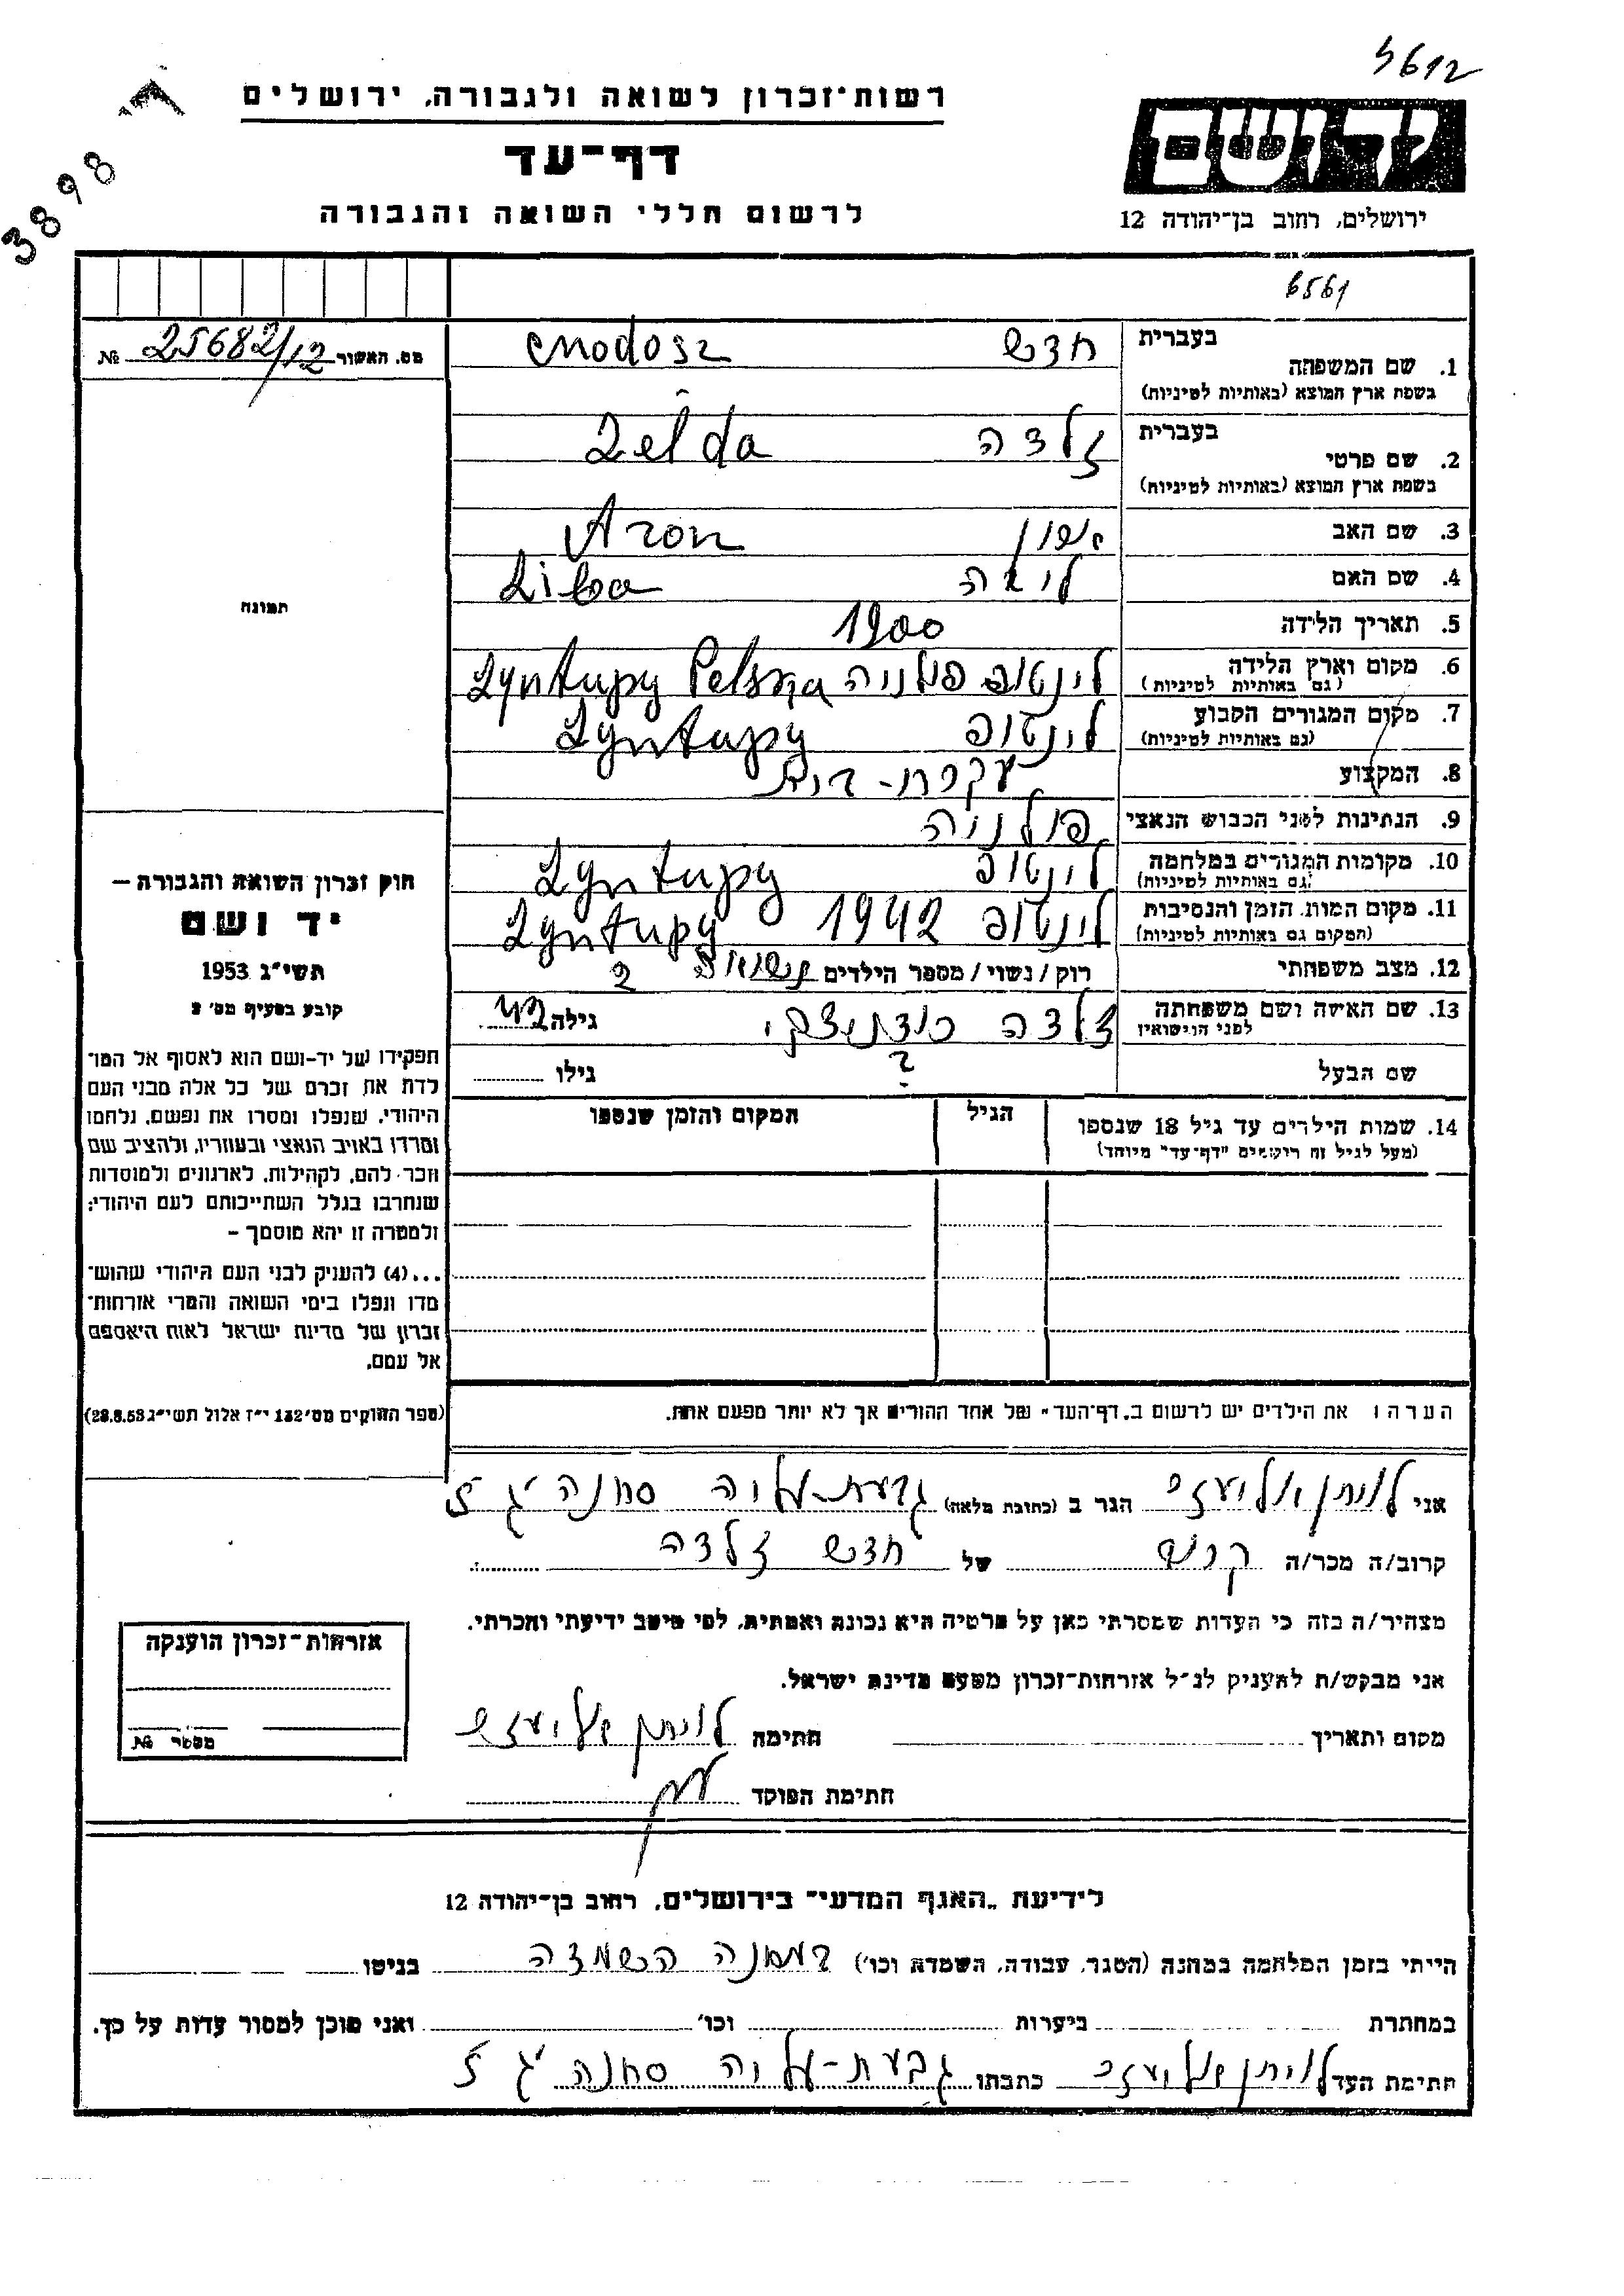 5612
רשות-זכרון לשואה ולגבורה, ירושלים
דף-עד
לרשום חללי השואה והגבורה
יד ושם
ירושלים, רחוב בן-יהודה 12
3898
6561
מס. האשור 25682/12 №
תמונה
1. שם המשפחה בעברית חדש Chodosz
בשפת ארץ המוצא (באותיות לטיניות)
2. שם פרטי בעברית זלדה Zelda
בשפת ארץ המוצא (באותיות לטיניות)
3. שם האב Aron
4. שם האם ליבה Liba
5. תאריך הלידה 1900
6. מקום וארץ הלידה לינטופ פולניה Lyntupy Polska
(גם באותיות לטיניות)
7. מקום המגורים הקבוע לינטופ Lyntupy
(גם באותיות לטיניות)
8. המקצוע עקרת-בית
9. הנתינות לפני הכבוש הנאצי פולניה
10. מקומות המגורים במלחמה לינטופ Lyntupy
(גם באותיות לטיניות)
11. מקום המות, הזמן והנסיבות לינטופ 1942 Lyntupy
(המקום גם באותיות לטיניות)
12. מצב משפחתי רוק/נשוי/מספר הילדים 2
13. שם האשה ושם משפחתה לפני הנישואין זלדה גילה 42
שם הבעל ? גילו
14. שמות הילדים עד גיל 18 שנספו הגיל המקום והזמן שנספו
(מעל לגיל זה רושמים "דף-עד" מיוחד)
חוק זכרון השואה והגבורה —
יד ושם
תשי"ג 1953
קובע בסעיף מס' 2
תפקידו של יד-ושם הוא לאסוף אל המו-
לדת את זכרם של כל אלה מבני העם
היהודי, שנפלו ומסרו את נפשם, נלחמו
ומרדו באויב הנאצי ובעוזריו, ולהציב שם
וזכר להם, לקהילות, לארגונים ולמוסדות
שנחרבו בגלל השתייכותם לעם היהודי;
ולמטרה זו יהא מוסמך —
...(4) להעניק לבני העם היהודי שהוש-
מדו ונפלו בימי השואה והמרי אזרחות-
זכרון של מדינת ישראל לאות היאספם
אל עמם.
(ספר החוקים מס' 132 י"ז אלול תשי"ג 28.8.53)
הערה: את הילדים יש לרשום ב"דף-העד" של אחד ההורים אך לא יותר מפעם אחת.
אני לויתן אליעזר הגר ב (כתובת מלאה) גבעת-עליה סחנה ג' 5
קרוב/ה מכר/ה קרוב של חדש זלדה
מצהיר/ה בזה כי העדות שמסרתי כאן על פרטיה היא נכונה ואמתית, לפי מיטב ידיעתי והכרתי.
אני מבקש/ת להעניק לנ"ל אזרחות-זכרון מטעם מדינת ישראל.
מקום ותאריך חתימה לויתן אליעזר
חתימת הפוקד
אזרחות-זכרון הוענקה
מספר №
לידיעת "האגף המדעי" בירושלים, רחוב בן-יהודה 12
הייתי בזמן המלחמה במחנה (הסגר, עבודה, השמדה וכו') במחנה השמדה בגיטו
במחתרת ביערות וכו' ואני מוכן למסור עדות על כך.
חתימת העד לויתן אליעזר כתבתו גבעת-עליה סחנה ג' 5